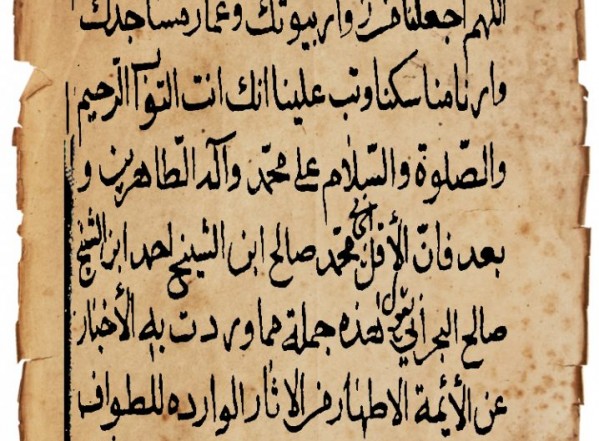 اللهم اجعلنا من زوار بيوتك وعمار مساجدك
وارنا مناسكنا وتب علينا انك انت التواب الرحيم
والصّلوة والسّلام على محمّد وآله الطّاهرين و
بعد فانّ الأقل الشيخ محمّد صالح ابن الشيخ احمد ابن الشيخ
صالح البحراني يقول هذه جملة مما وردت به الأخبار
عن الأئمة الاطهار من الاثار الوارده للطواف